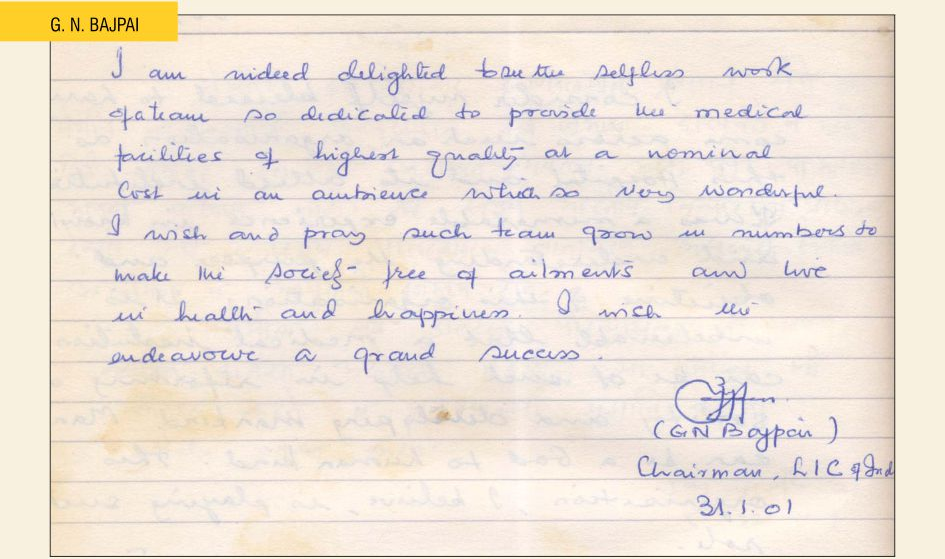 G. N. BAJPAI
I am indeed delighted to see the selfless work
of a team so dedicated to provide the medical
facilities of highest quality at a nominal
cost in an ambience which so very wonderful.
I wish and pray such team grow in numbers to
make the society free of ailments and live
in health and happiness. I wish the
endeavour a grand success.
(GN Bajpai)
Chairman, LIC of Ind
31.1.01